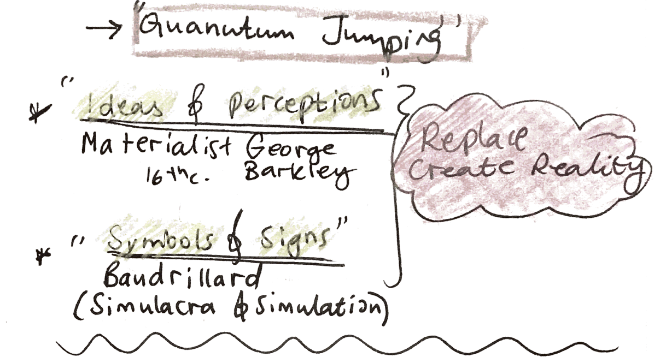 → "Quanutum Jumping"
* "Ideas & perceptions"
Materialist George
16thc. Barkley
Replace
Create Reality
* "Symbols & Signs"
Baudrillard
(Simulacra & Simulation)